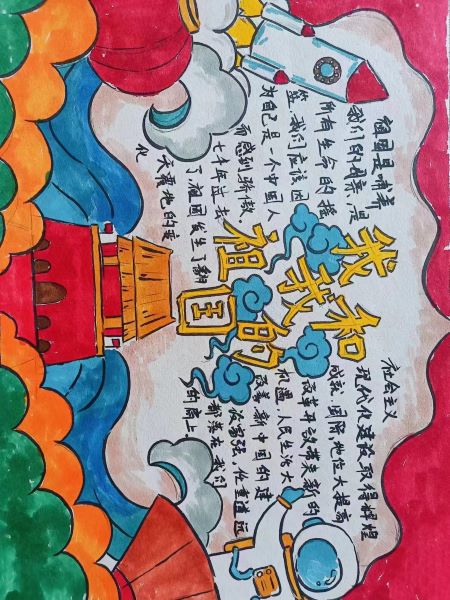 我和我的祖国
祖国是哺养
我们的母亲,是
所有生命的摇
篮,我们应该因
为自己是一个中国人
而感到骄傲.
七十年过去
了,祖国发生了翻
天覆地的变
化
社会主义
现代化建设取得辉煌
成就,国际地位大提高
改革开放带来新的
机遇,人民生活大
改善,新中国的建
设富强,任重道远
都落在我们
的肩上.